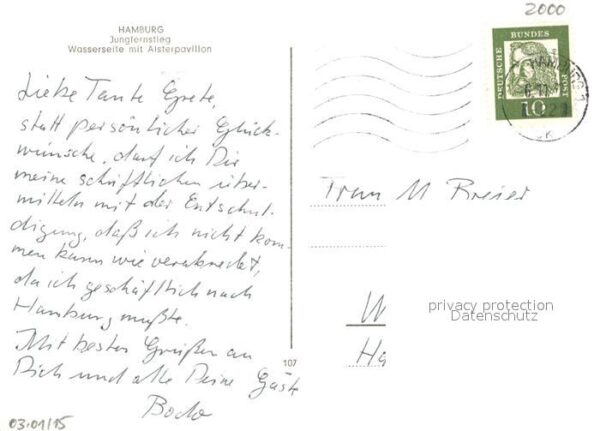 HAMBURG
Jungfernstieg
Wasserseite mit Alsterpavillon
Liebe Tante Grete,
statt persönlicher Glück-
wünsche, darf ich Dir
meine schriftlichen über-
mitteln mit der Entschul-
digung, daß ich nicht kom-
men kann wie verabredet,
da ich geschäftlich nach
Hamburg mußte.
Mit besten Grüßen an
Dich und alle Deine Gäste
Bodo
03.01/15
107
2000
DEUTSCHE BUNDES POST
10
HAMBURG 1
Frau M
W
Ha
privacy protection
Datenschutz